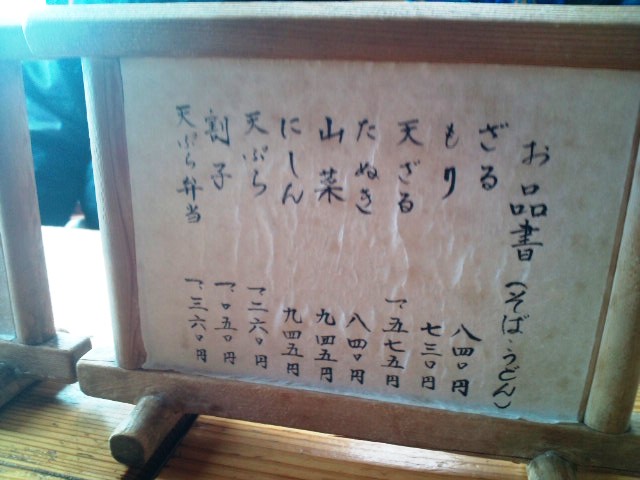 お品書（そば・うどん）
ざる 八四〇円
もり 七三〇円
天ざる 一、五七五円
たぬき 八四〇円
山菜 九四五円
にしん 九四五円
天ぷら 一、二六〇円
割子 一、〇五〇円
天ぷら弁当 一、三六〇円